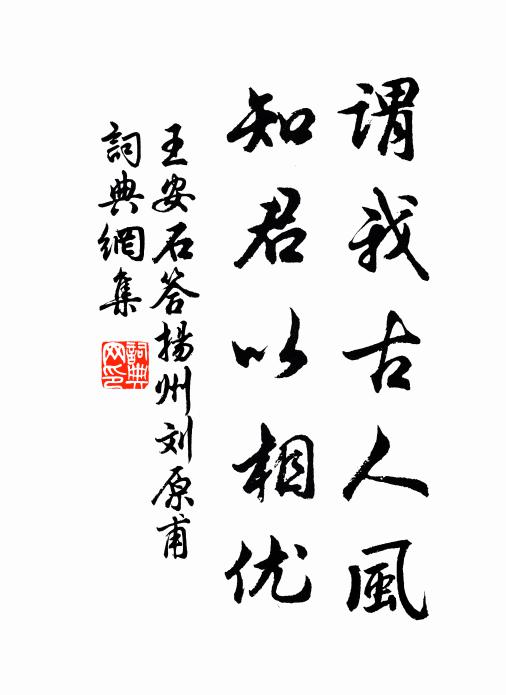 謂我古人風
知君以相优
王安石答揚州刘原甫
詞典網集
詞典
网印